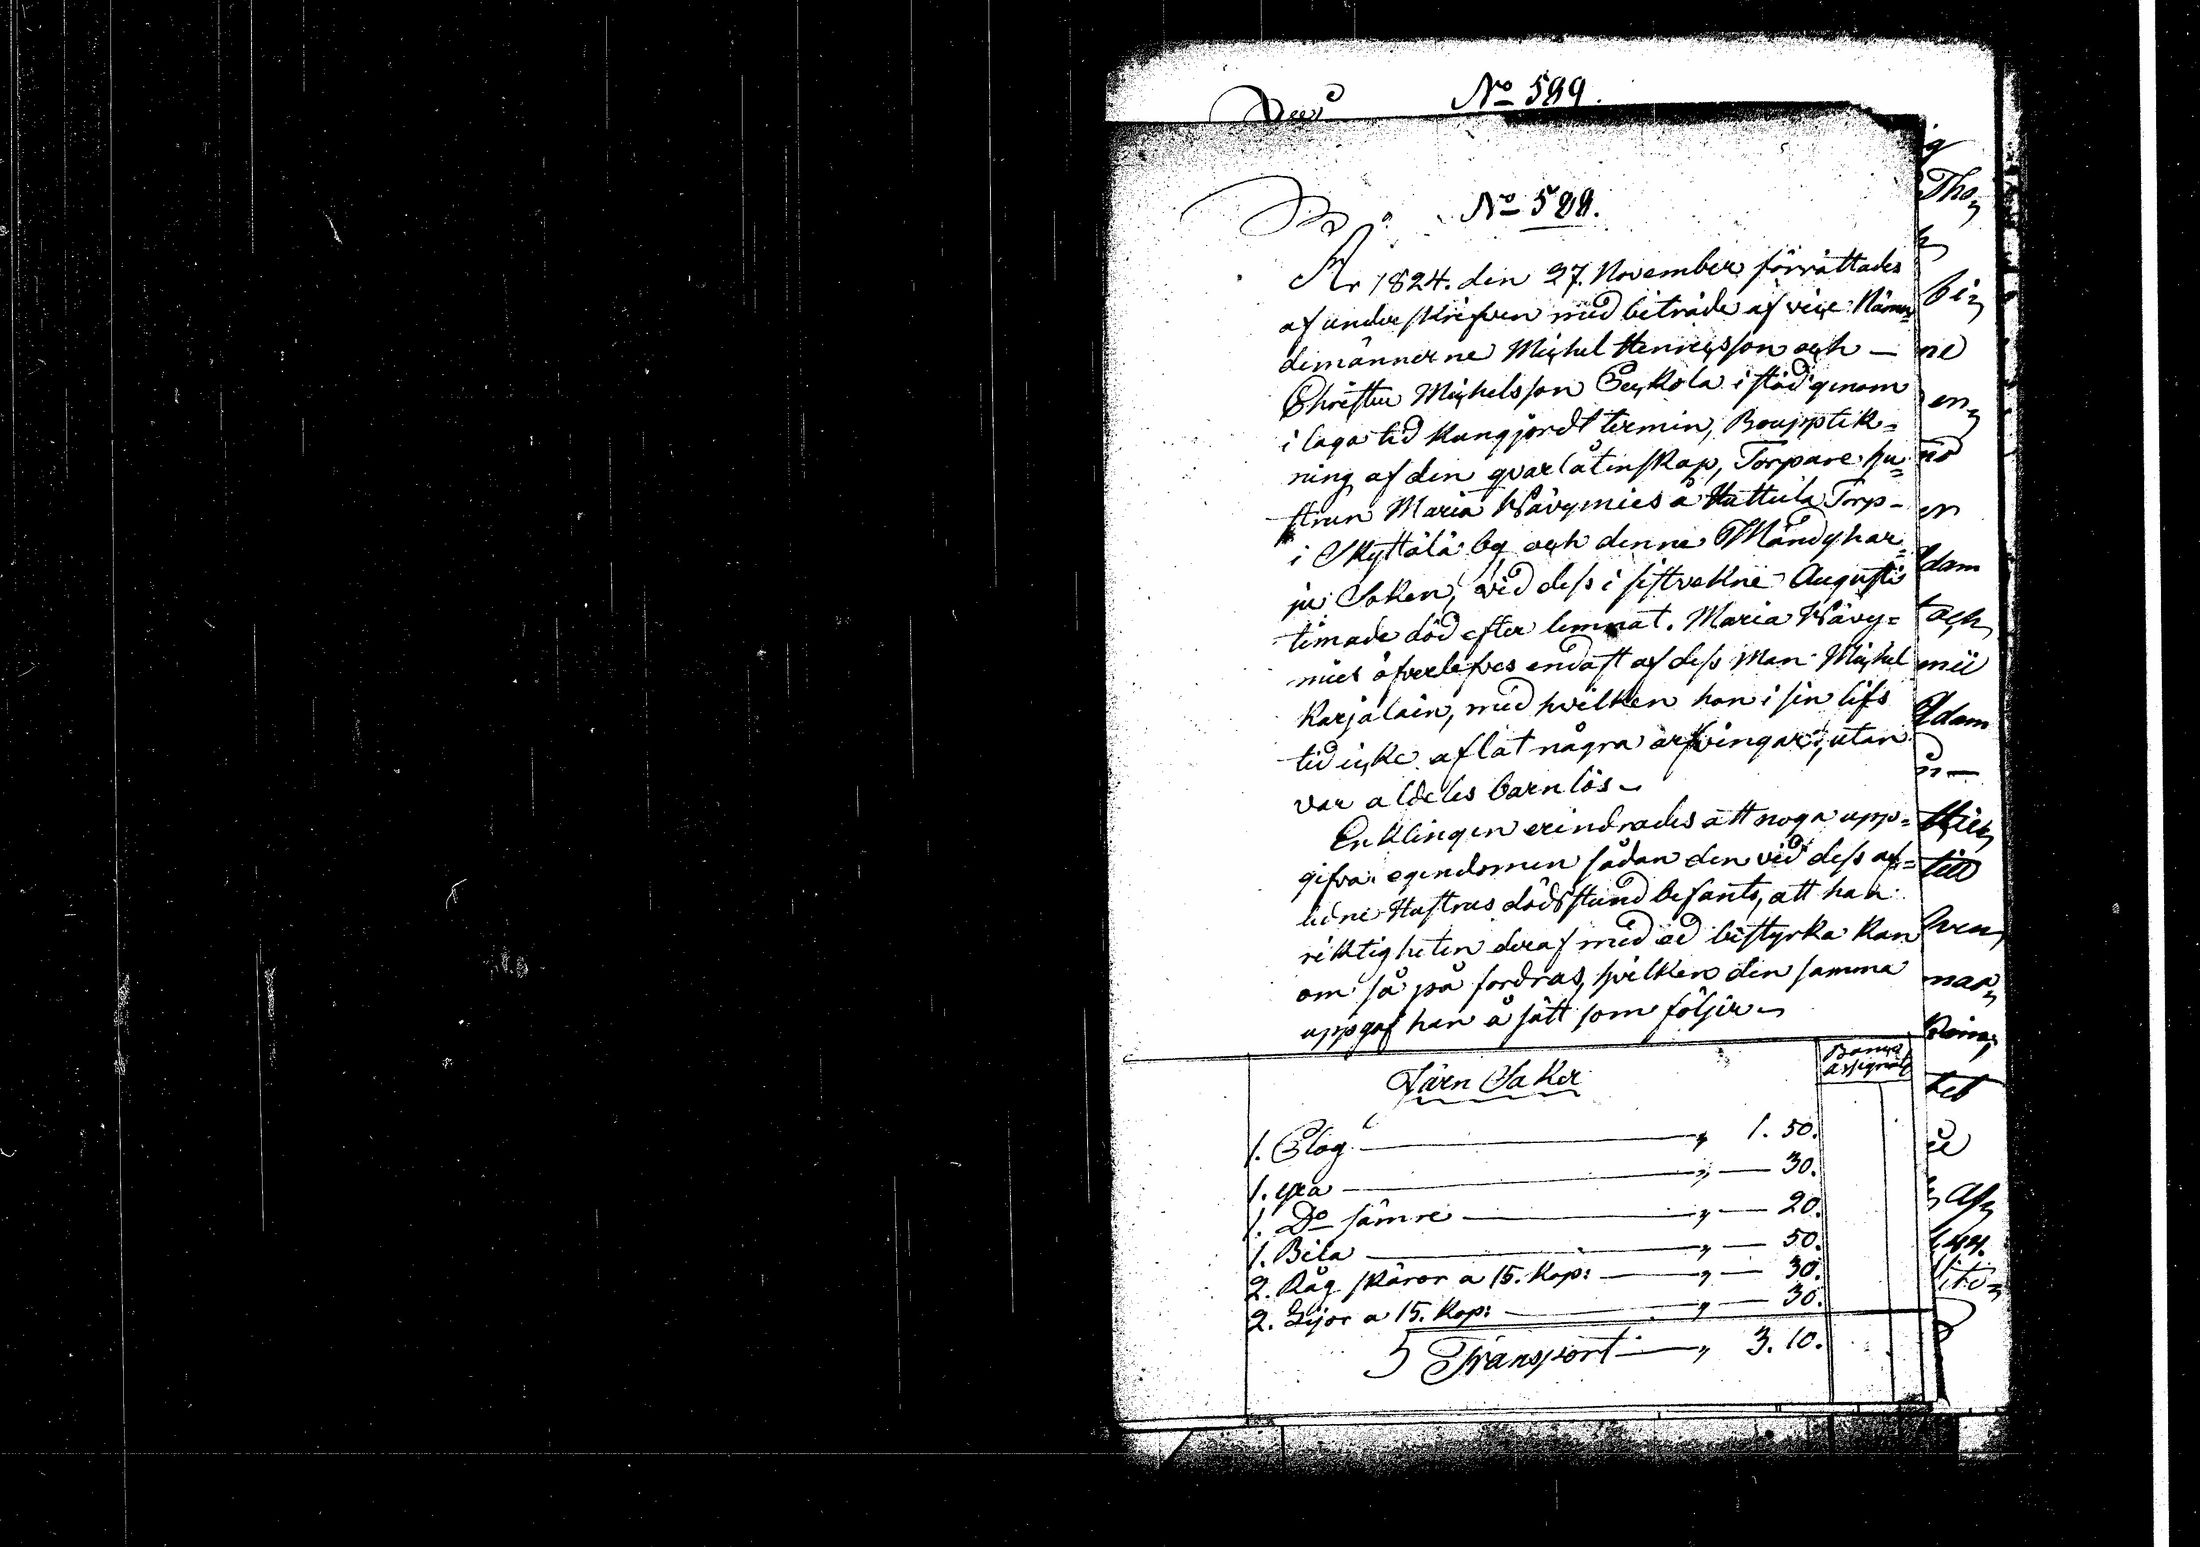 No 589.
No 588.
År 1824. den 27. November förrättades
af underskrifven med biträde af vice Näm=
demännerne Michel Henricsson och —
Christer Michelsson Peckola i stöd genom
i laga tid kungjordt termin, Boupptek=
ning af den qvarlåtenskap, Torpare hu=
strun Maria Wävymies å Hattula Torp-
i Skyttälä by och denne Mändyhar=
ju Soken, vid dess i sistvekne Augusti
timade död efter lemnat. Maria Wävy=
mies öfverlefves endast af dess Man Michel
Karjalain, med hvilken hon i sin lifs
tid icke aflat några arfvingar, utan
var aldeles barnlös.
Enklingen erindrades att noga upp=
gifva egendomen sådan den vid dess af=
lidne Hustrus dödsstund befants, att han
riktigheten deraf med ed bestyrka kan
om så på fordras, hvilken den samma
uppgaf han å sätt som följer
Banco
assignat
Järn Saker
1. Plog — „ 1. 50.
1. yxa — „ — 30.
1. Do sämre — „ — 20.
1. Bila — „ — 50.
2. Råg skäror a 15. Kop: — „ — 30.
2. Lijor a 15. Kop: — „ — 30.
Transport — „ 3. 10.